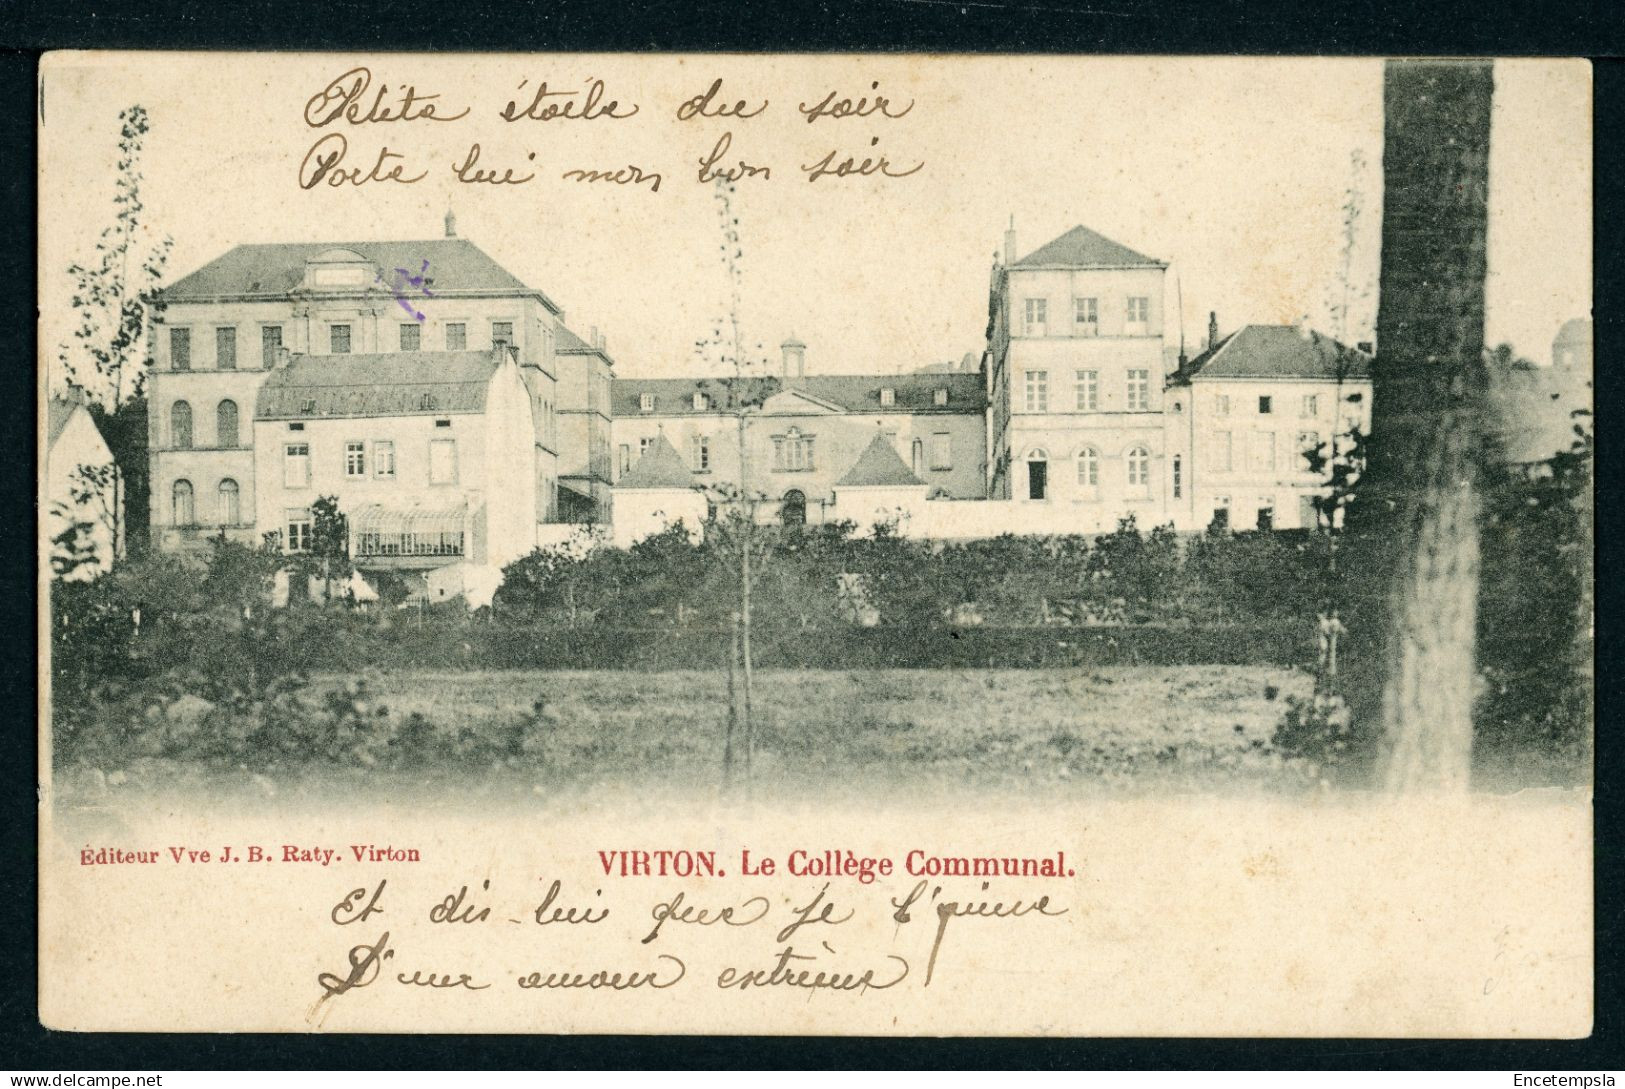 Petite étoile du soir
Porte lui mon bon soir
Éditeur Vve J. B. Raty. Virton
VIRTON. Le Collège Communal.
Et dis-lui que je l'aime
D'un amour extrème
Encetempsla